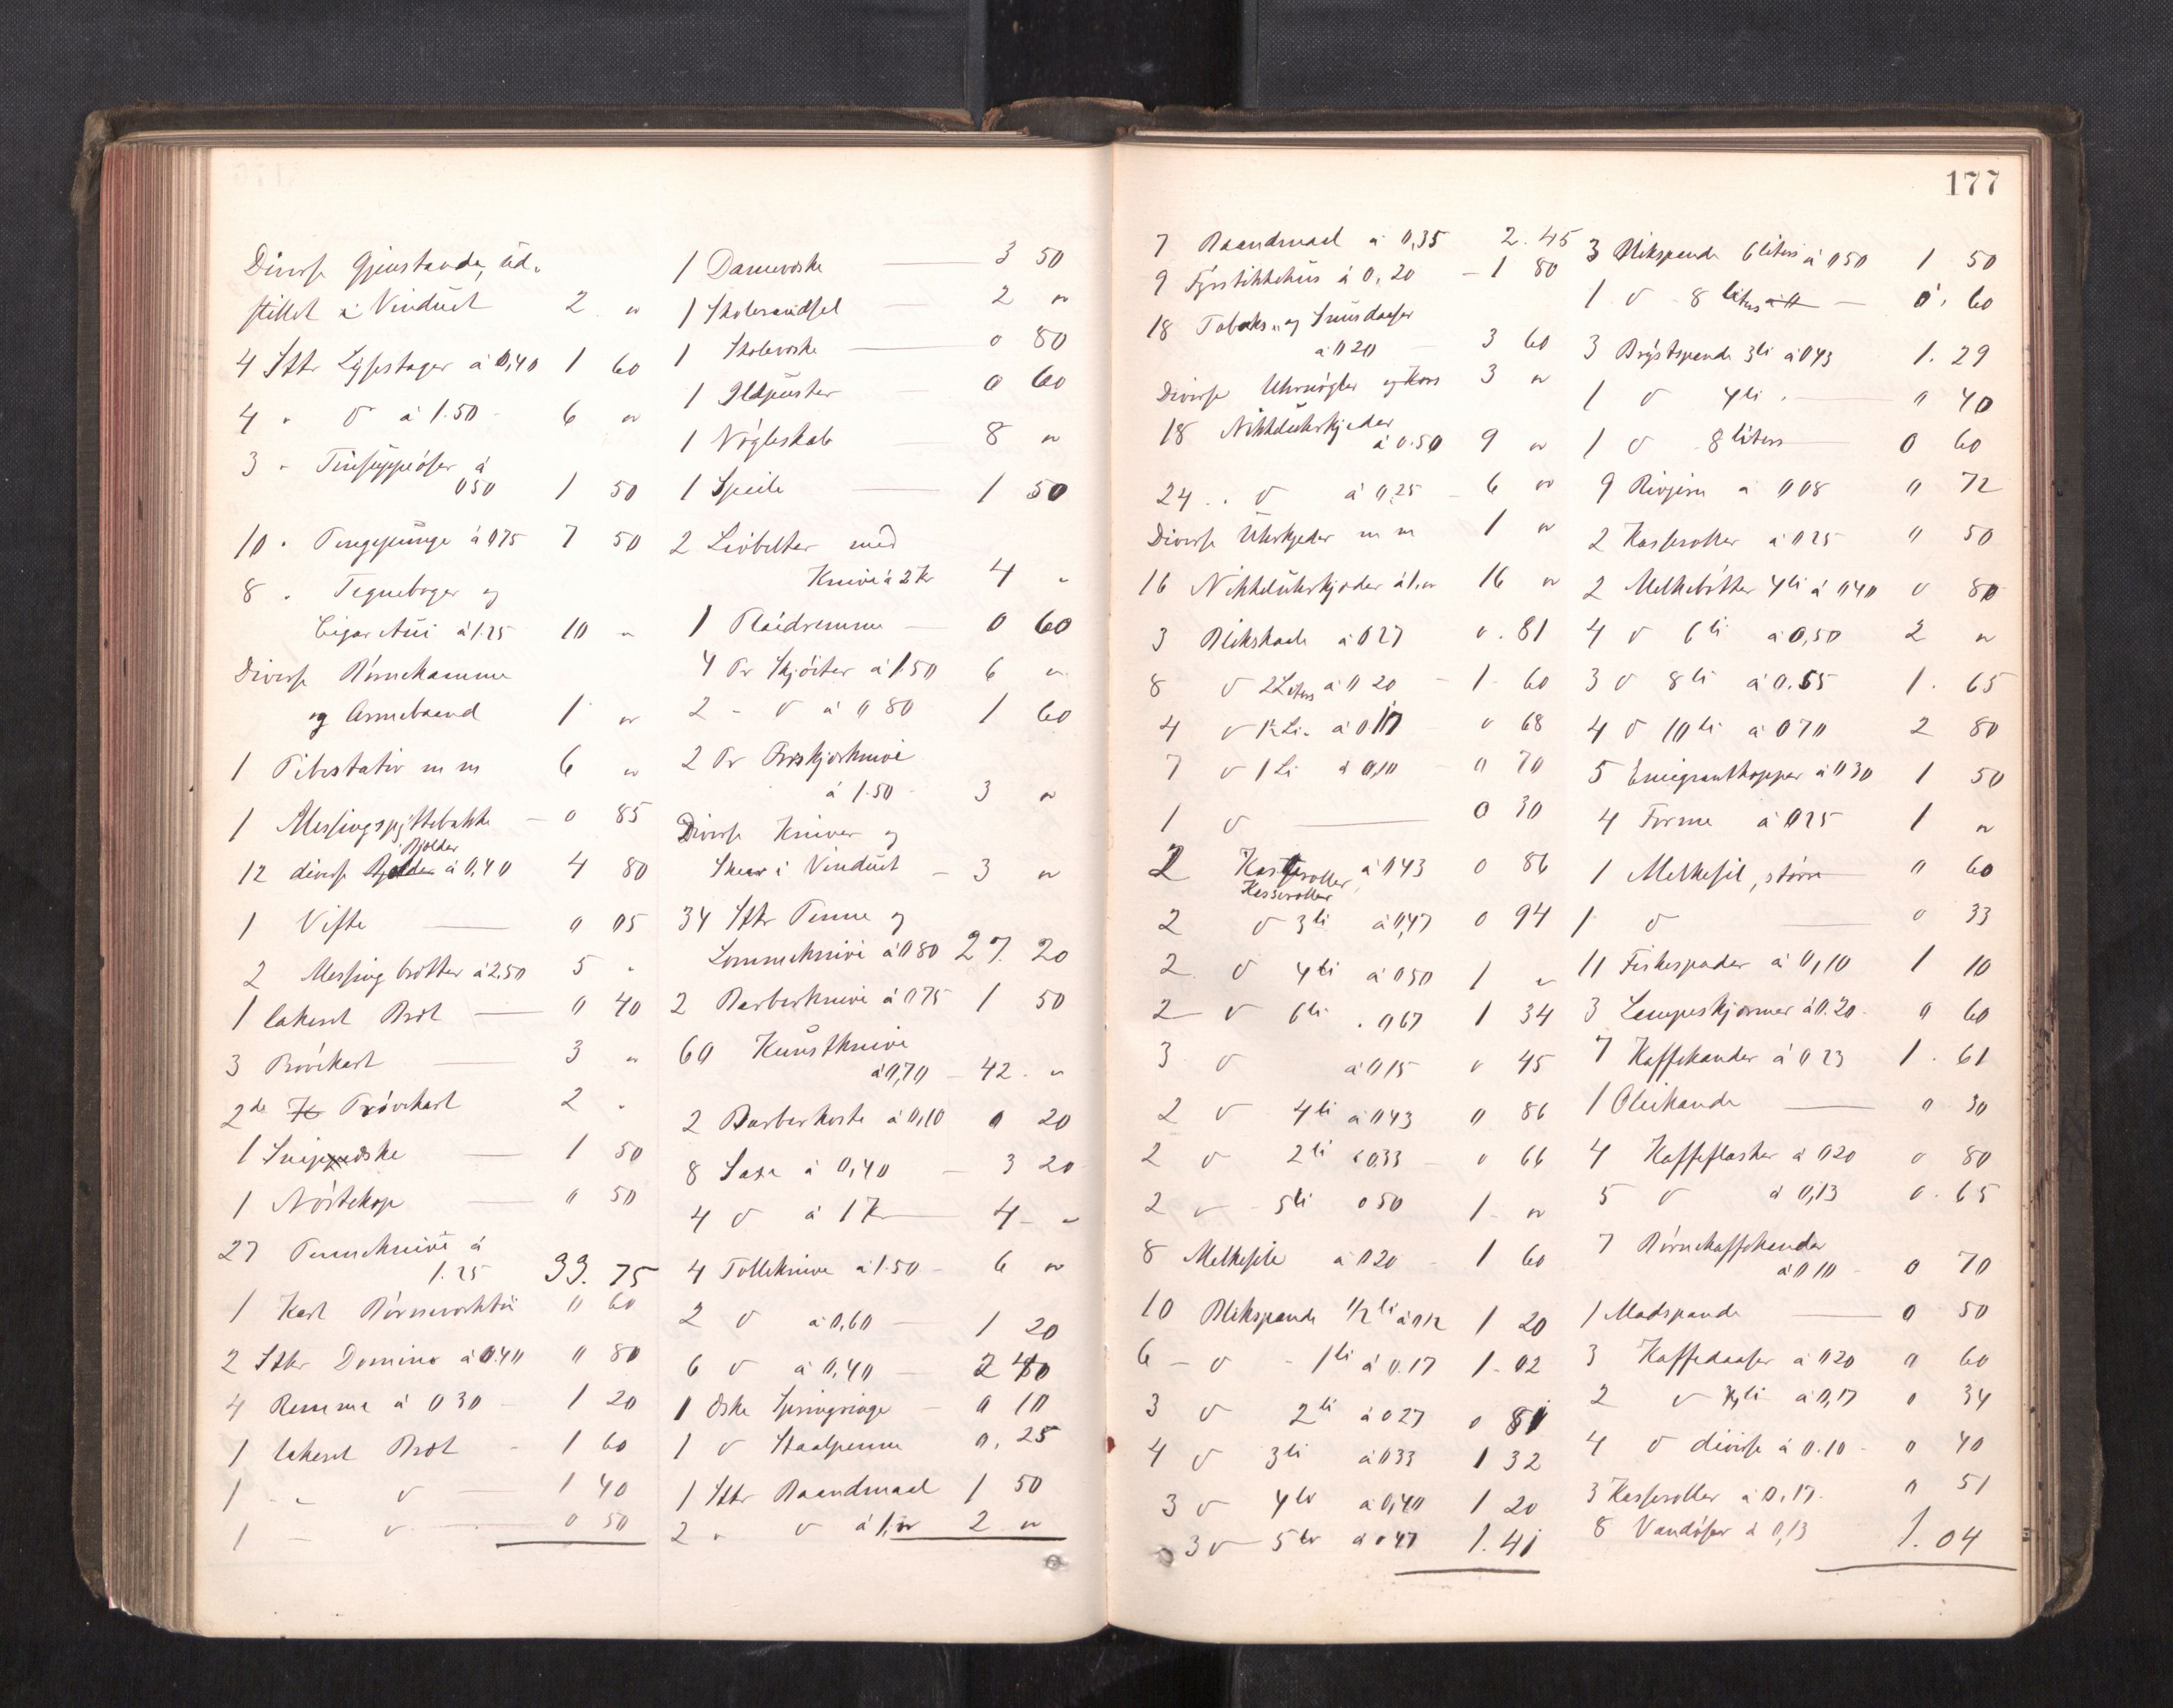 177
Diverse Gjenstande, ud„
stillet i Vinduet 2 "
4 Stkr Lysestager à 0,40 1 60
4 " d à 1.50 6 "
3 " Tinsuppeöser à
050 1 50
10 " Pengepunge à 075 7 50
8 " Tegnebøger og
Cigar Etui à 1.25 10 "
Diverse Börnekamme
og Armebaand 1 "
1 Pibestativ m m 6 "
1 Messingspyttebakke 0 85
Bjölder
12 diverse à 0,40 4 80
1 Vifte 0 05
2 Messing bötter à 2.50 5 "
1 lakeret Bret 0 40
3 Brövekort 3 "
2 de Prövekort 2 "
1 Snippeske 1 50
1 Nöstekop 0 50
27 Penneknive à
1.25 33.75
1 Kort Börneverktöi 0 60
2 Stkr Domino à 0.40 0 80
4 Remme à 030 1 20
1 lakeret Bret 1 60
1 " d 1 40
1 " d 0 50
1 Dameveske 3 50
1 Skolerandsel 2 "
1 Skoleveske 0 80
1 Ildpuster 0 60
1 Nögleskab 8 "
1 Speile 1 50
2 Livbelter med
Knive à 2 Kr 4 "
1 Plaidremme 0 60
4 Pr Skjöiter à 1.50 6 "
2 " d à 0 80 1 60
2 Pr Forskjærknive
à 1.50 3 "
Diverse Kniver og
Skeer i Vinduet 3 "
34 Stkr Penne og
Lommeknive à 0 80 27. 20
2 Barberknive à 075 1 50
60 Kunstknive
à 0,70 42. "
2 Barberkoste à 0,10 0 20
8 Saxe à 0,40 3 20
4 d à 1 Kr 4 "
4 Tolleknive à 1.50 6 "
2 d à 0,60 1 20
6 d à 0,40 2 40
1 Eske Springringe 0 10
1 d Staalpenne 0. 25
1 Stkr Baandmaal 1 50
2 " d à 1," 2 "
7 Baandmaal à 0,35 2.45
9 Fyrstikkehus à 0,20 1 80
18 Tobaks„ og Snusdaaser
à 0 20 3 60
Diverse Uhrnögler og Kors 3 "
18 Nikkeluhrkjeder
à 0.50 9 "
24 " d à 0,25 6 "
Diverse Uhrkjeder m m 1 "
16 Nikkeluhrkjeder à 1," 16 "
3 Blikskaale à 027 0.81
8 d 2 Liters à 0 20 1 60
4 d 1½ Li. à 0 17 0 68
7 d 1 Li à 0,10 0 70
1 d 0 30
2 Kasseroller à 043 0 86
Kasseroller
2 d 3 li à 0,47 0 94
2 d 4 li à 050 1 "
2 d 6 li " 067 1 34
3 d à 0 15 0 45
2 d 4 li à 043 0 86
2 d 2 li à 0.33 0 66
2 d 5 li 0 50 1 "
8 Melkesile à 0 20 1 60
10 Blikspande 1/2 li à 0 12 1 20
6 d 1 li à 0.17 1.02
3 d 2 li à 027 0 81
4 d 3 li à 033 1 32
3 d 4 li à 0,40 1 20
3 d 5 li à 047 1.41
3 Blikspande 6 liters à 050 1 50
1 d 8 liters 0. 60
3 Brystspande 3 li à 043 1.29
1 d 4 li 0 40
1 d 8 liters 0 60
9 Rivjern à 0 08 0 72
2 Kasseroller à 0 25 0 50
2 Melkebötter 4 li à 0 40 0 80
4 d 6 li à 0,50 2 "
3 d 8 li à 0.55 1.65
4 d 10 li à 070 2 80
5 Emigrantkopper à 0 30 1 50
4 Forme à 025 1 "
1 Melkesil, större 0 60
1 d 0 33
11 Fiskespader à 0,10 1 10
3 Lampeskjermer à 0.20 0 60
7 Kaffekander à 0 23 1.61
1 Oliekande 0 30
4 Kaffeflasker à 020 0 80
5 d à 0,13 0.65
7 Börnekaffekander
à 0 10 0 70
1 Madspande 0 50
3 Kaffedaaser à 020 0 60
2 d à 0,17 0 34
4 d diverse à 0.10 0 40
3 Kasseroller à 0,17 0 51
8 Vandöser à 0,13 1.04